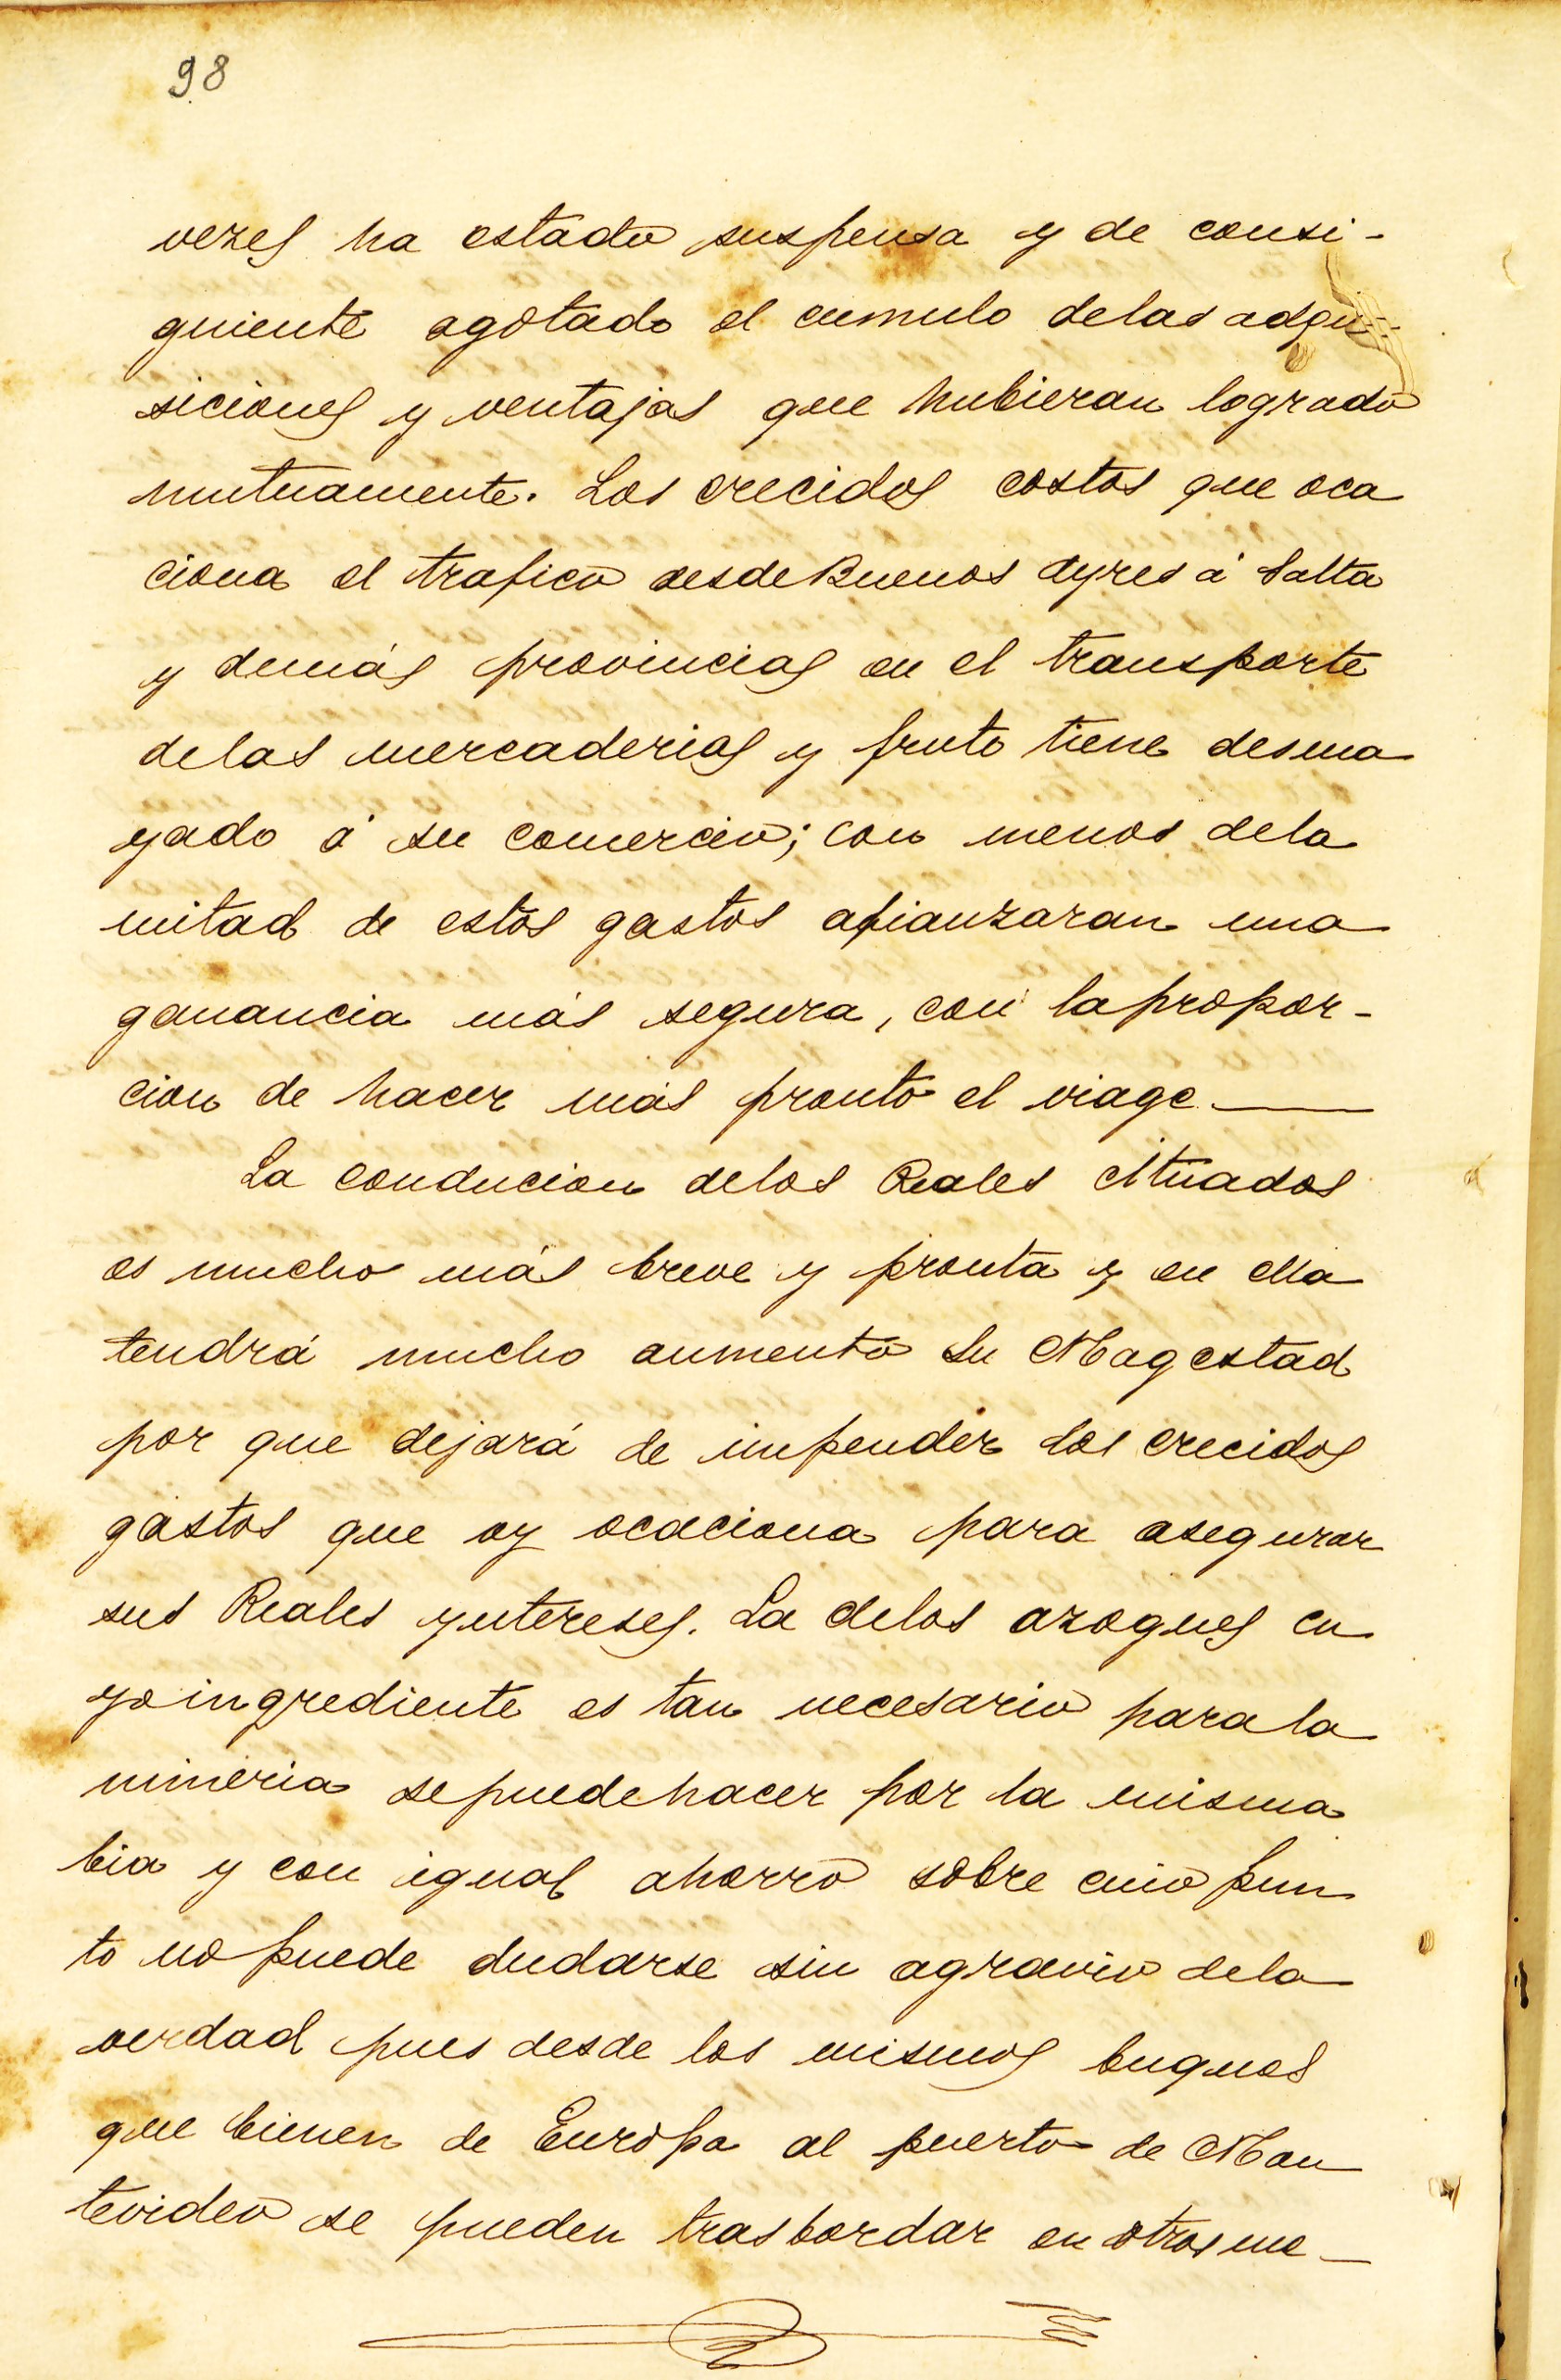 98
vezes ha estado suspensa y de consi-
guiente agotado el cumulo delas adqui-
siciones y ventajas que hubieran logrado
mutuamente. Los crecidos costos que oca
ciona el trafico desde Buenos Ayres á Salta
y demás provincias en el transporte
delas mercaderias y fruto tiene desma
yado á su comercio; con menos dela
mitad de estos gastos afianzaran una
ganancia más segura, con la propor-
cion de hacer más pronto el viage.
La conducion delos Reales situados
es mucho más breve y pronta y en ella
tendrá mucho aumento Su Magestad
por que dejará de impender los crecidos
gastos que oy ocaciona para asegurar
sus Reales yntereses. La delos azogues cu
yo ingrediente es tan necesario para la
mineria se puede hacer por la misma
bia y con igual ahorro sobre cuio pun
to no puede dudarse sin agravio dela
verdad pues desde los mismos buques
que bienen de Europa al puerto de Mon
tevideo se pueden trasbordar en otros me-